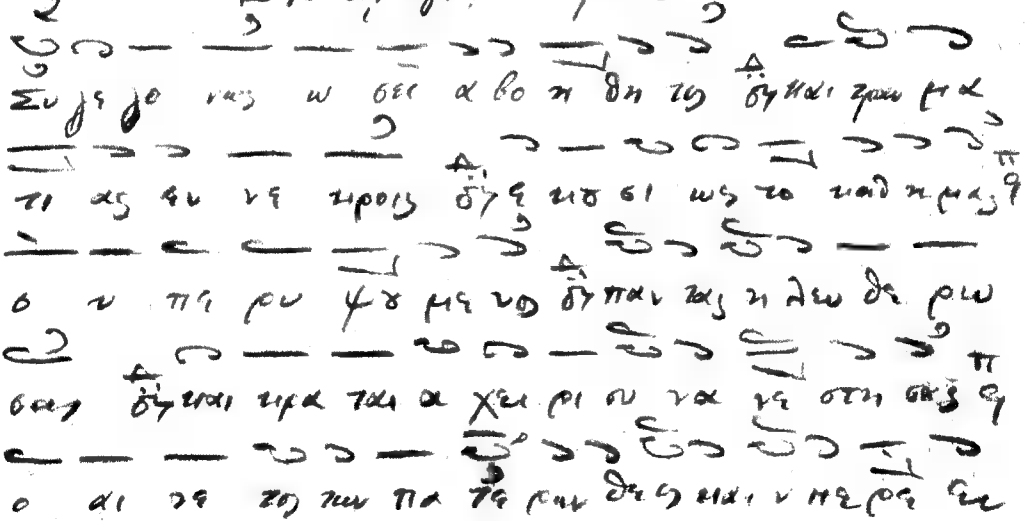 Συ γε γο νας ω σει α βο η θη τος και τραυ μα
τι ας εν νε κροις ε κου σι ως το καθ η μας
ο υ πε ρυ ψου με νος παν τας η λευ θε ρω
σας και κρα ται α χει ρι συ να νε στη σας
ο αι νε τος των πα τε ρων θε ος και υ πε ρε